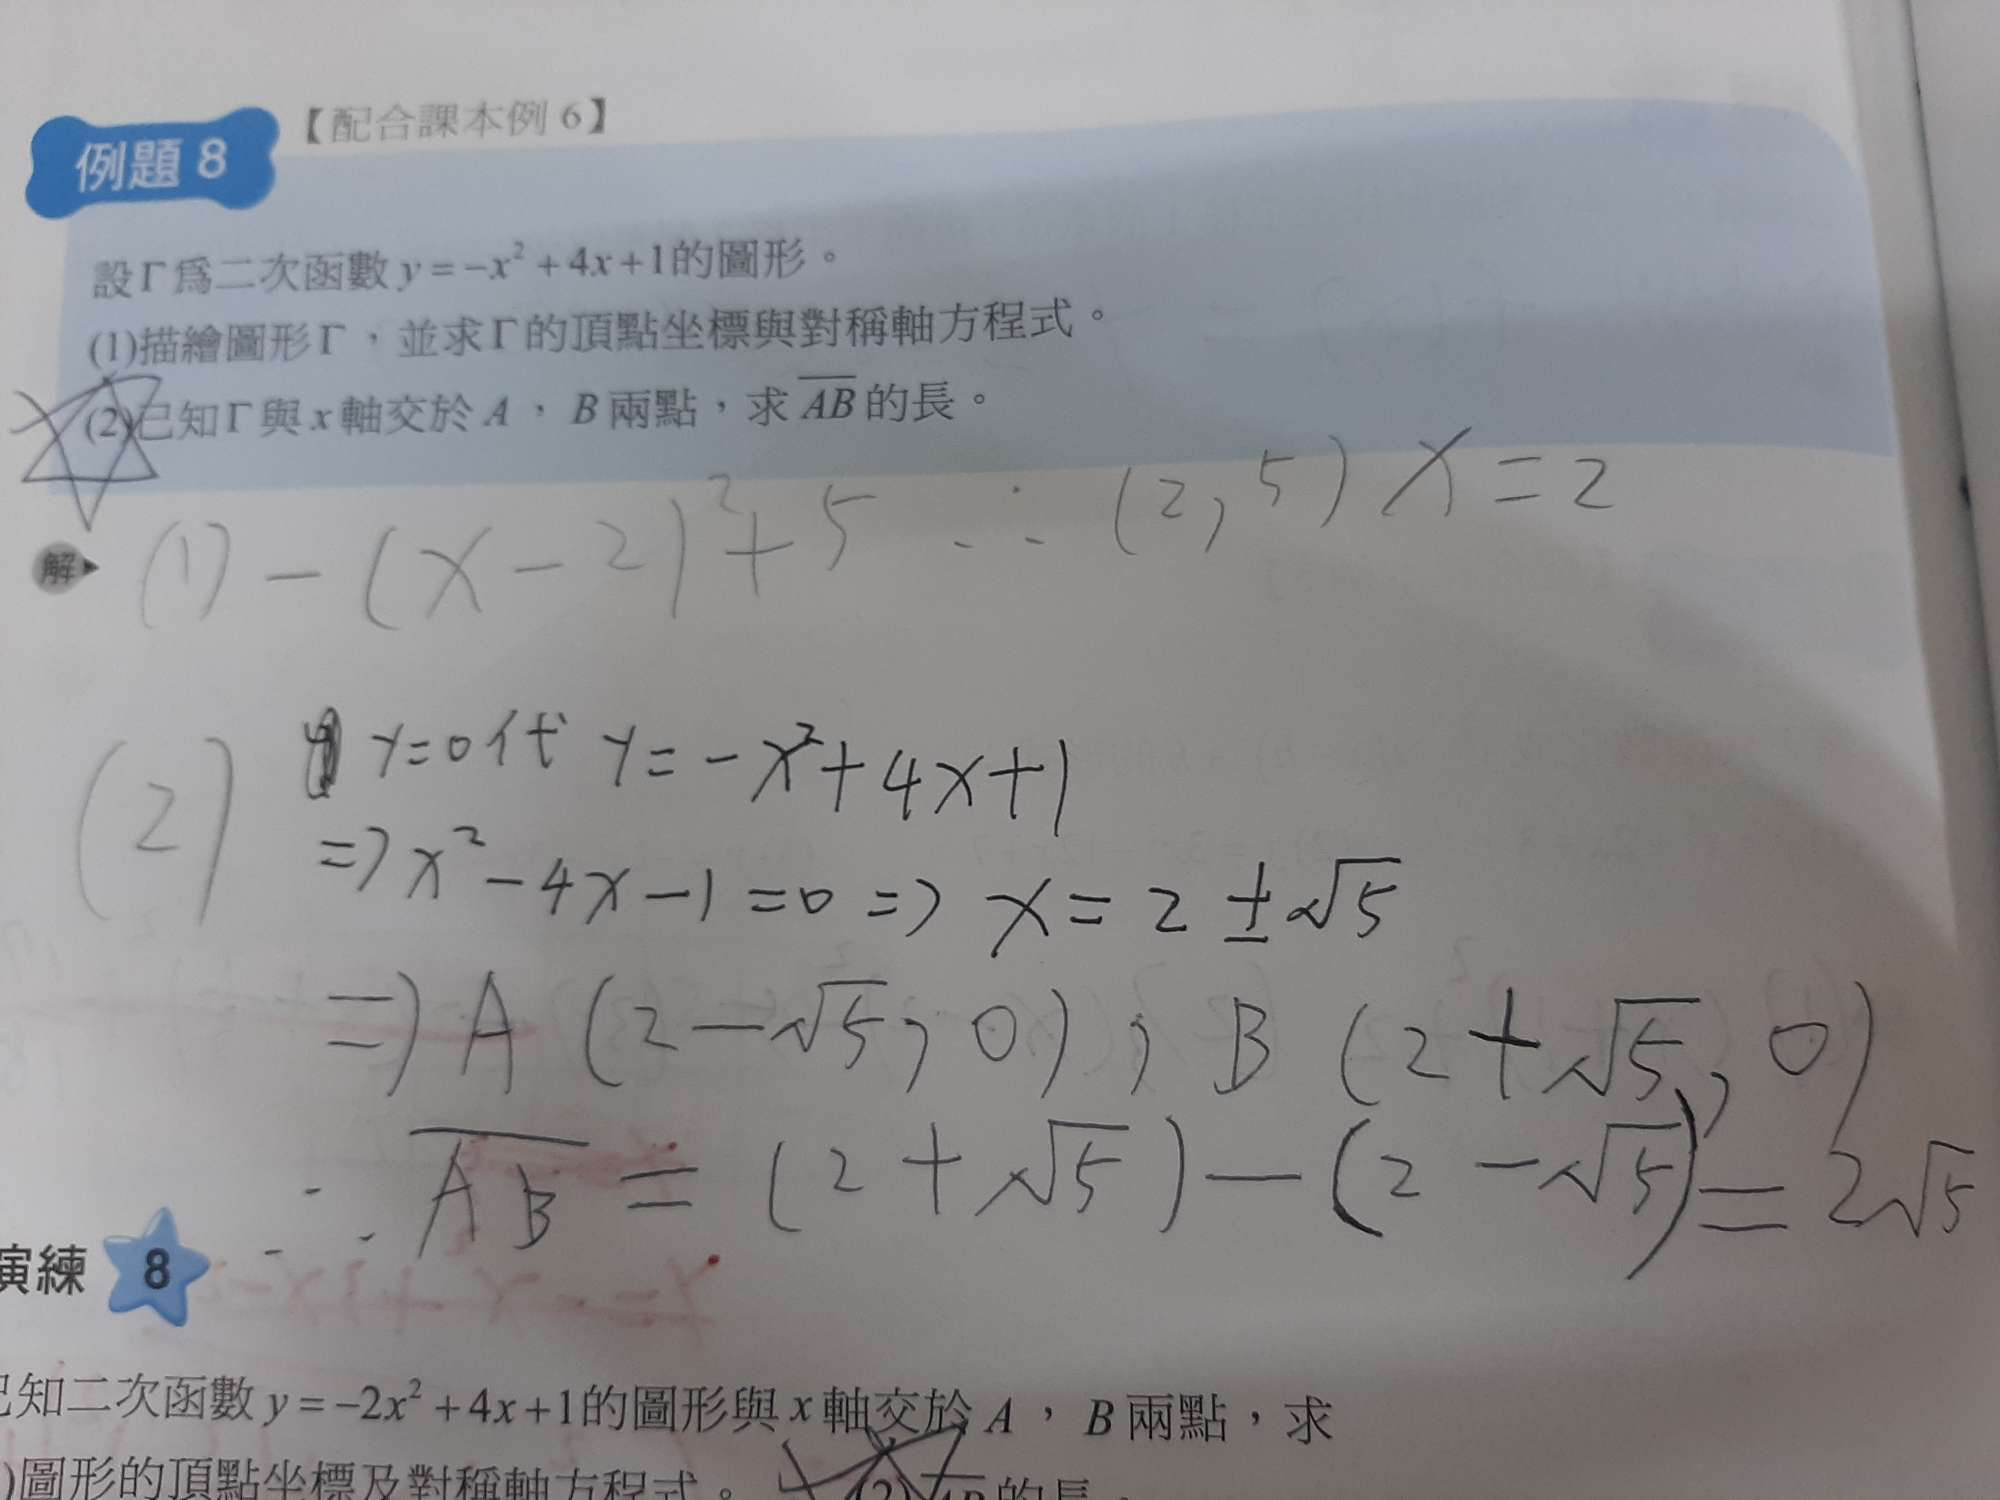 【配合課本例 6】
例題 8
設Γ為二次函數 y = -x² + 4x + 1的圖形。
(1)描繪圖形Γ，並求Γ的頂點坐標與對稱軸方程式。
(2)已知Γ與 x 軸交於 A，B 兩點，求 \overline{AB} 的長。
解 (1) -(x-2)²+5 ∴ (2,5) x=2
(2) y=0代 y=-x²+4x+1
⇒ x²-4x-1=0 ⇒ x=2±√5
⇒ A (2-√5, 0), B (2+√5, 0)
∴ \overline{AB} = (2+√5)-(2-√5) = 2√5
演練 8
已知二次函數 y = -2x² + 4x + 1的圖形與 x 軸交於 A，B 兩點，求
)圖形的頂點坐標及對稱軸方程式。 (2) \overline{AB} 的長。